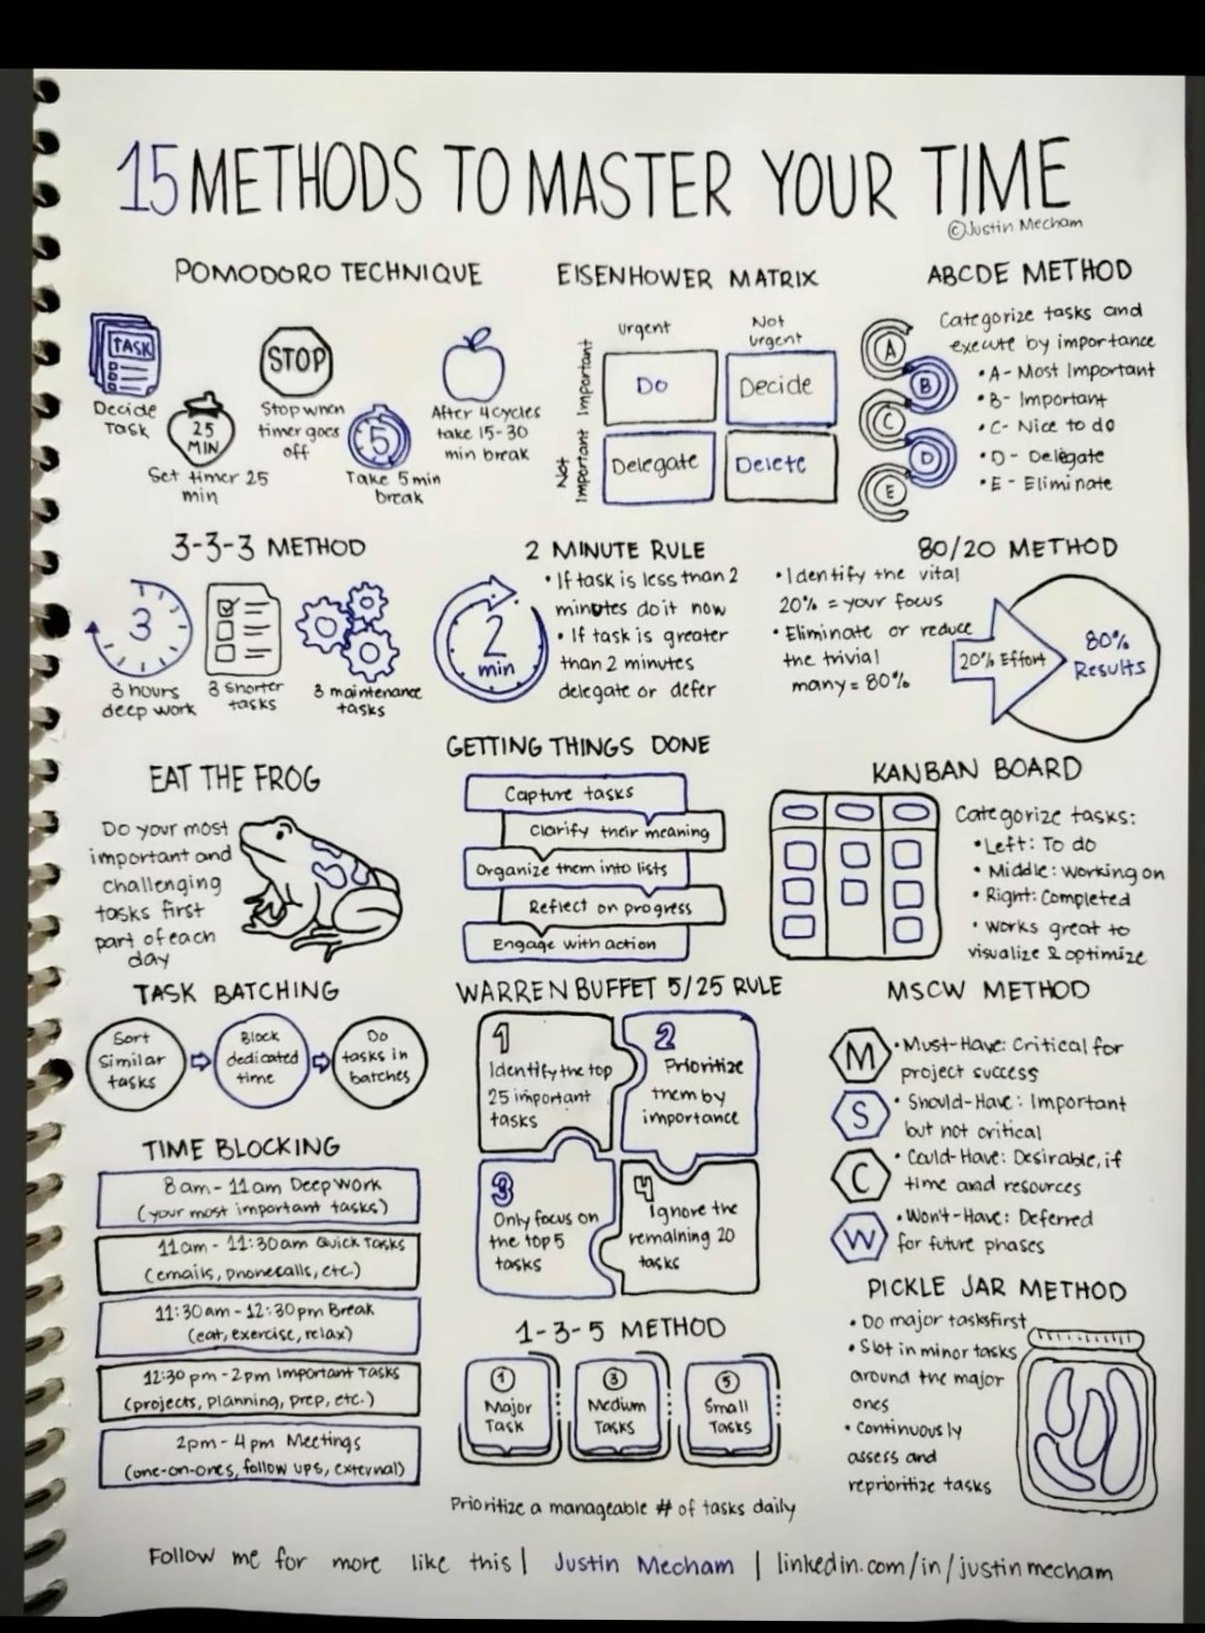 15 METHODS TO MASTER YOUR TIME
©Justin Mecham
POMODORO TECHNIQUE
TASK
Decide
Task
25
MIN
Set timer 25
min
STOP
Stop when
timer goes
off
5
Take 5 min
break
After 4 cycles
take 15-30
min break
EISENHOWER MATRIX
urgent
Not
urgent
Important
Not
Important
Do
Decide
Delegate
Delete
ABCDE METHOD
Categorize tasks and
execute by importance
A
B
C
D
E
• A - Most Important
• B - Important
• C - Nice to do
• D - Delegate
• E - Eliminate
3-3-3 METHOD
3
3 hours
deep work
3 shorter
tasks
3 maintenance
tasks
2 MINUTE RULE
2
min
• If task is less than 2
minutes do it now
• If task is greater
than 2 minutes
delegate or defer
80/20 METHOD
• Identify the vital
20% = your focus
• Eliminate or reduce
the trivial
many = 80%
20% Effort
80%
Results
EAT THE FROG
Do your most
important and
challenging
tasks first
part of each
day
GETTING THINGS DONE
Capture tasks
Clarify their meaning
Organize them into lists
Reflect on progress
Engage with action
KANBAN BOARD
Categorize tasks:
• Left: To do
• Middle: working on
• Right: Completed
• works great to
visualize & optimize
TASK BATCHING
Sort
Similar
tasks
Block
dedicated
time
Do
tasks in
batches
WARREN BUFFET 5/25 RULE
1
Identify the top
25 important
tasks
2
Prioritize
them by
importance
3
Only focus on
the top 5
tasks
4
Ignore the
remaining 20
tasks
MSCW METHOD
M
• Must-Have: Critical for
project success
S
• Should-Have: Important
but not critical
C
• Could-Have: Desirable, if
time and resources
W
• Won't-Have: Deferred
for future phases
TIME BLOCKING
8am - 11am Deep Work
(your most important tasks)
11am - 11:30am Quick Tasks
(emails, phonecalls, etc.)
11:30am - 12:30pm Break
(eat, exercise, relax)
12:30 pm - 2pm Important Tasks
(projects, planning, prep, etc.)
2pm - 4 pm Meetings
(one-on-ones, follow ups, external)
1-3-5 METHOD
1
Major
Task
3
Medium
Tasks
5
Small
Tasks
Prioritize a manageable # of tasks daily
PICKLE JAR METHOD
• Do major tasksfirst
• Slot in minor tasks
around the major
ones
• Continuously
assess and
reprioritize tasks
Follow me for more like this | Justin Mecham | linkedin.com/in/justinmecham